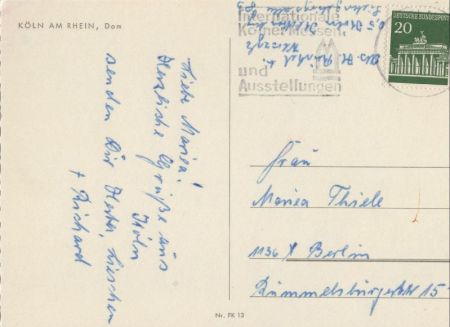 KÖLN AM RHEIN, Dom
Liebe Marisa!
Herzliche Grüße aus
Köln
senden Dir Herta, Lieschen
+ Richard
Internationale
Kölner Messen
und
Ausstellungen
DEUTSCHE BUNDESPOST
20
Frau
Marisa Thiele
1136 Berlin
Rummelsburgerstr 15
Nr. FK 13